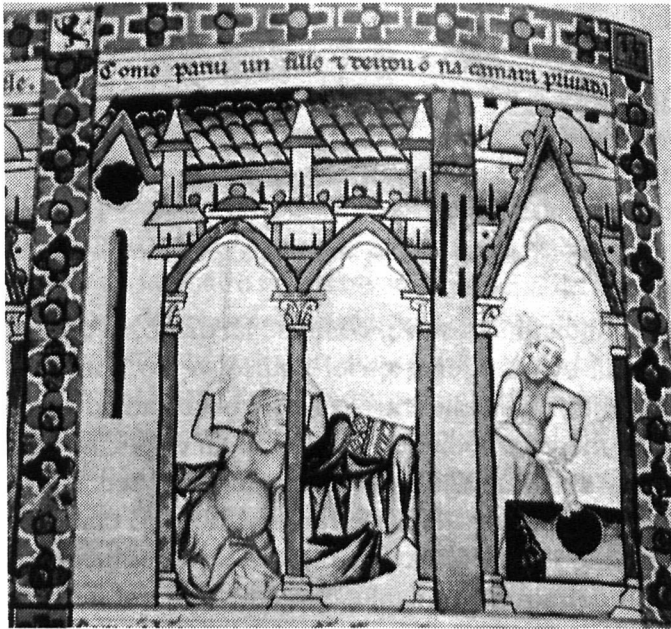 le.
Como pariu un fillo ⁊ deitou o na camara priuada